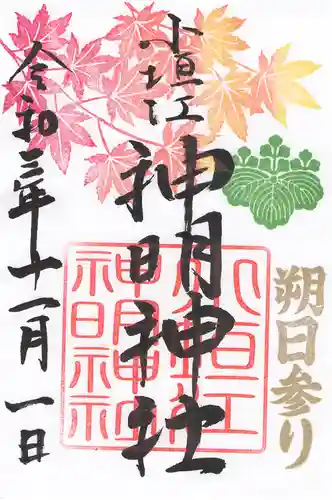 朔日参り
小垣江
神明神社
小垣江
神明神社
令和三年十一月一日